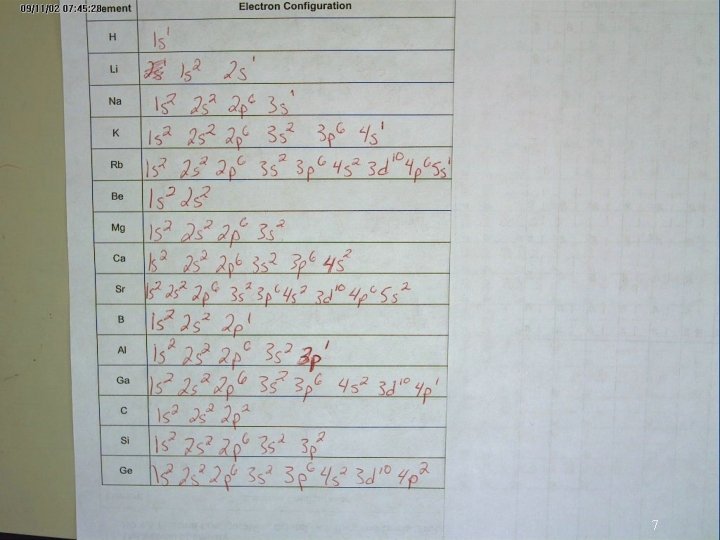 09/11/02 07:45:28
ement Electron Configuration
H 1s¹
Li 1s² 2s¹
Na 1s² 2s² 2p⁶ 3s¹
K 1s² 2s² 2p⁶ 3s² 3p⁶ 4s¹
Rb 1s² 2s² 2p⁶ 3s² 3p⁶ 4s² 3d¹⁰ 4p⁶ 5s¹
Be 1s² 2s²
Mg 1s² 2s² 2p⁶ 3s²
Ca 1s² 2s² 2p⁶ 3s² 3p⁶ 4s²
Sr 1s² 2s² 2p⁶ 3s² 3p⁶ 4s² 3d¹⁰ 4p⁶ 5s²
B 1s² 2s² 2p¹
Al 1s² 2s² 2p⁶ 3s² 3p¹
Ga 1s² 2s² 2p⁶ 3s² 3p⁶ 4s² 3d¹⁰ 4p¹
C 1s² 2s² 2p²
Si 1s² 2s² 2p⁶ 3s² 3p²
Ge 1s² 2s² 2p⁶ 3s² 3p⁶ 4s² 3d¹⁰ 4p²
7